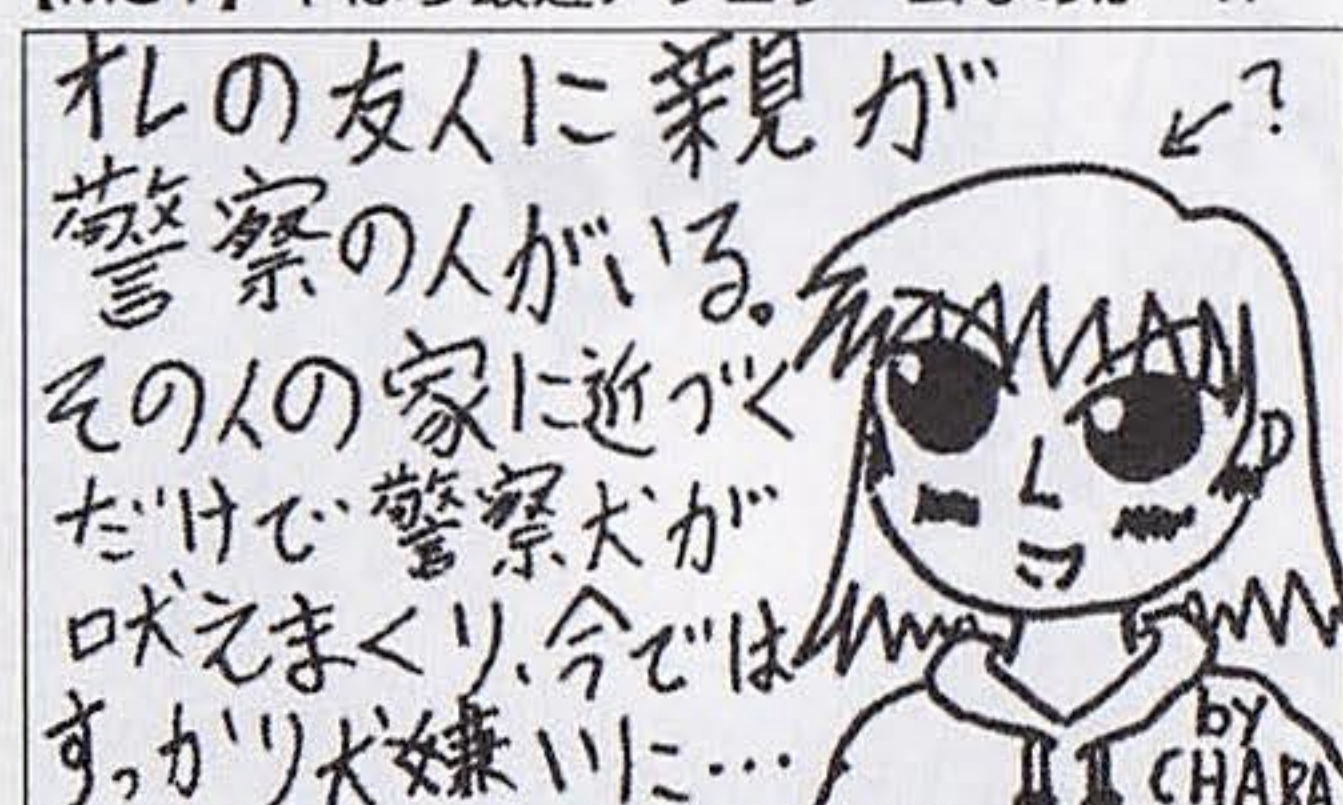 オレの友人に親が
警察の人がいる。
その人の家に近づく
だけで警察犬が
吠えまくり、今では
すっかり犬嫌いに…
?
by
CHARA